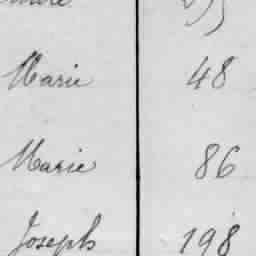 Marie 48
Marie 86
Joseph 198